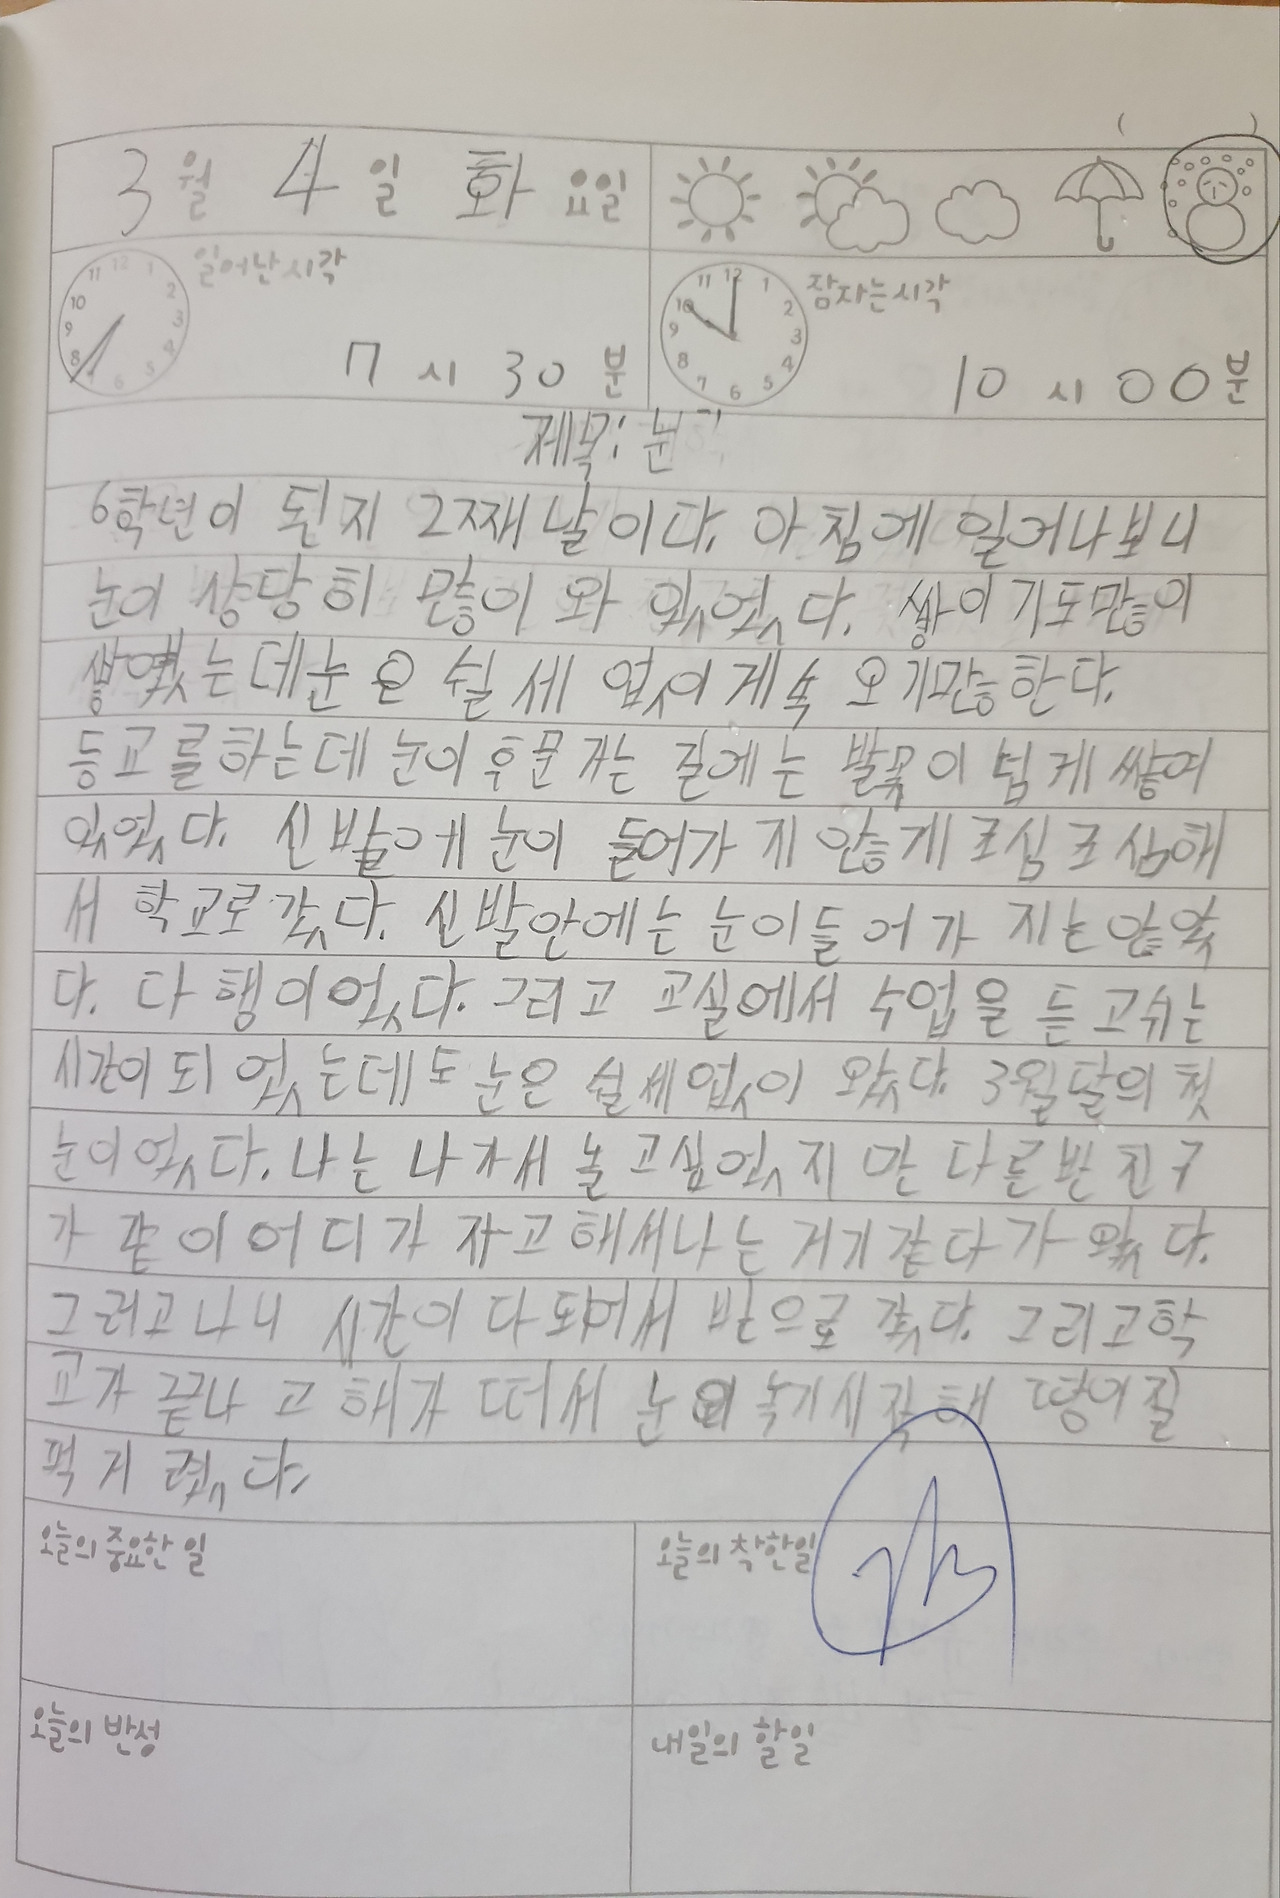 ( )
3월 4일 화요일
일어난시각
11 12 1
10 2
9 3
8 4
7 6 5
7시 30분
잠자는시각
11 12 1
10 2
9 3
8 4
7 6 5
10시 00분
제목: 눈
6학년이 된지 2째날이다. 아침에 일어나보니
눈이 상당히 많이 와 있었다. 쌓이기도많이
쌓였는데눈은 쉴세 없이계속 오기만한다.
등교를하는데 눈이 후문가는 길에는 발몾이 넘게 쌓여
있었다. 신발에 눈이 들어가지 않게 조심조심해
서 학교로갔다. 신발안에는 눈이들어가 지는 않았
다. 다행이었다. 그리고 교실에서 수업을 듣고쉬는
시간이 되었는데도 눈은 쉴세없이 왔다. 3월달의 첫
눈이었다. 나는 나가서 놀고싶었지만 다른반친구
가 같이 어디가자고해서나는 거기같다가 왔다.
그러고나니 시간이 다되어서 반으로 갔다. 그리고학
교가 끝나고 해가 떠서 눈이 녹기시작해 땅이질
퍽거렸다.
오늘의 중요한 일
오늘의 착한일
오늘의 반성
내일의 할일